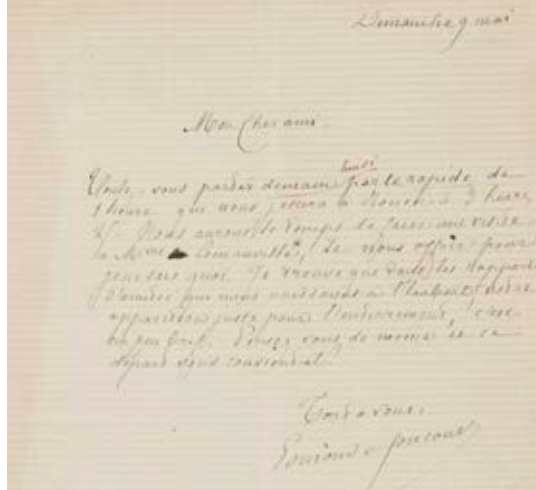 Dimanche 9 mai
Mon cher ami
vous partir demain lundi par le rapide de
1 heure qui nous à 3 heures
Nous aurons le temps de faire une visite
à Mme Commanville, de nous offrir pour
je ne sais quoi. Je trouve que dans les rapports
d'amitié que nous unissaient à Flaubert notre
apparition juste pour l'enterrement, c'est
un peu bref. Pensez vous de même et ce
départ vous convient-il
Tout à vous.
Edmond de Goncourt